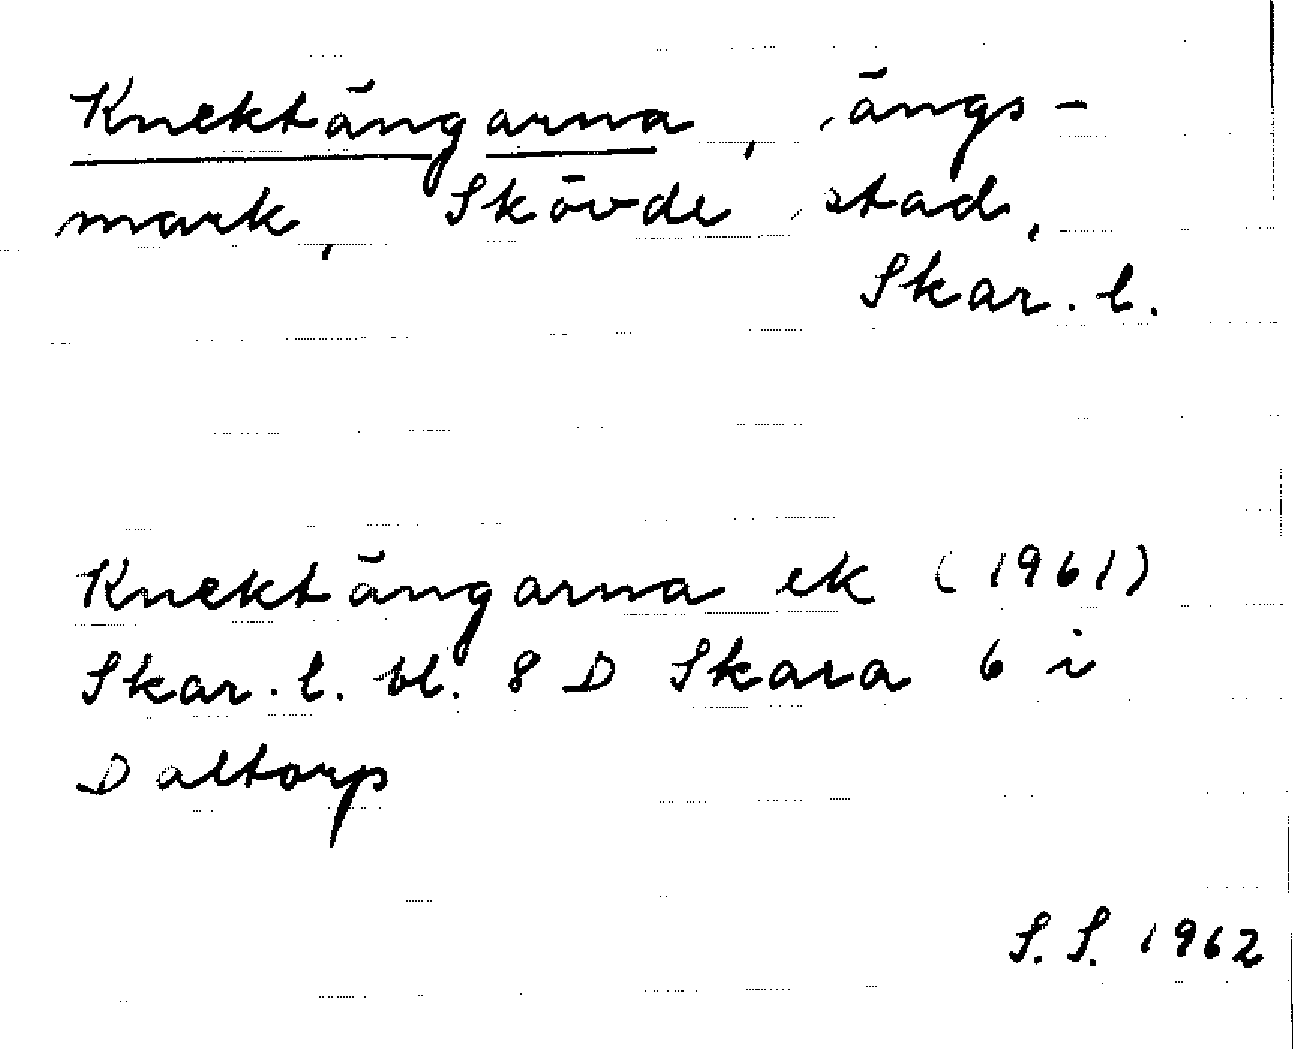 Knektängarna, ängs-
mark, Skövde stad,
Skar. l.
Knektängarna ek (1961)
Skar. l. bl. 8 D Skara 6 i
Daltorp
S. S. 1962